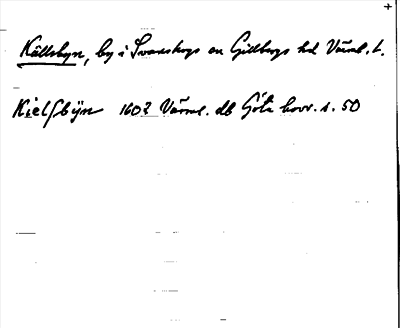 Källsbyn, by i Svanskogs sn Gillbergs hd Värml. l.
Kielsbÿn 1602 Värml. db Göta hovr. s. 50